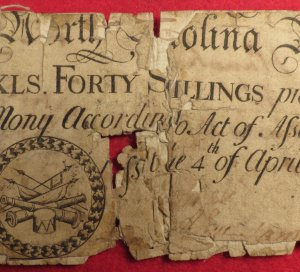 North Carolina
XLS. FORTY SHILLINGS
Mony According to Act of
the 4th of April